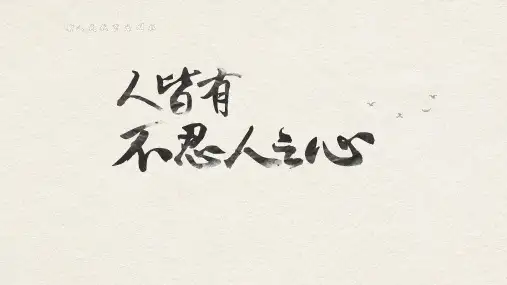 人皆有
不忍人之心